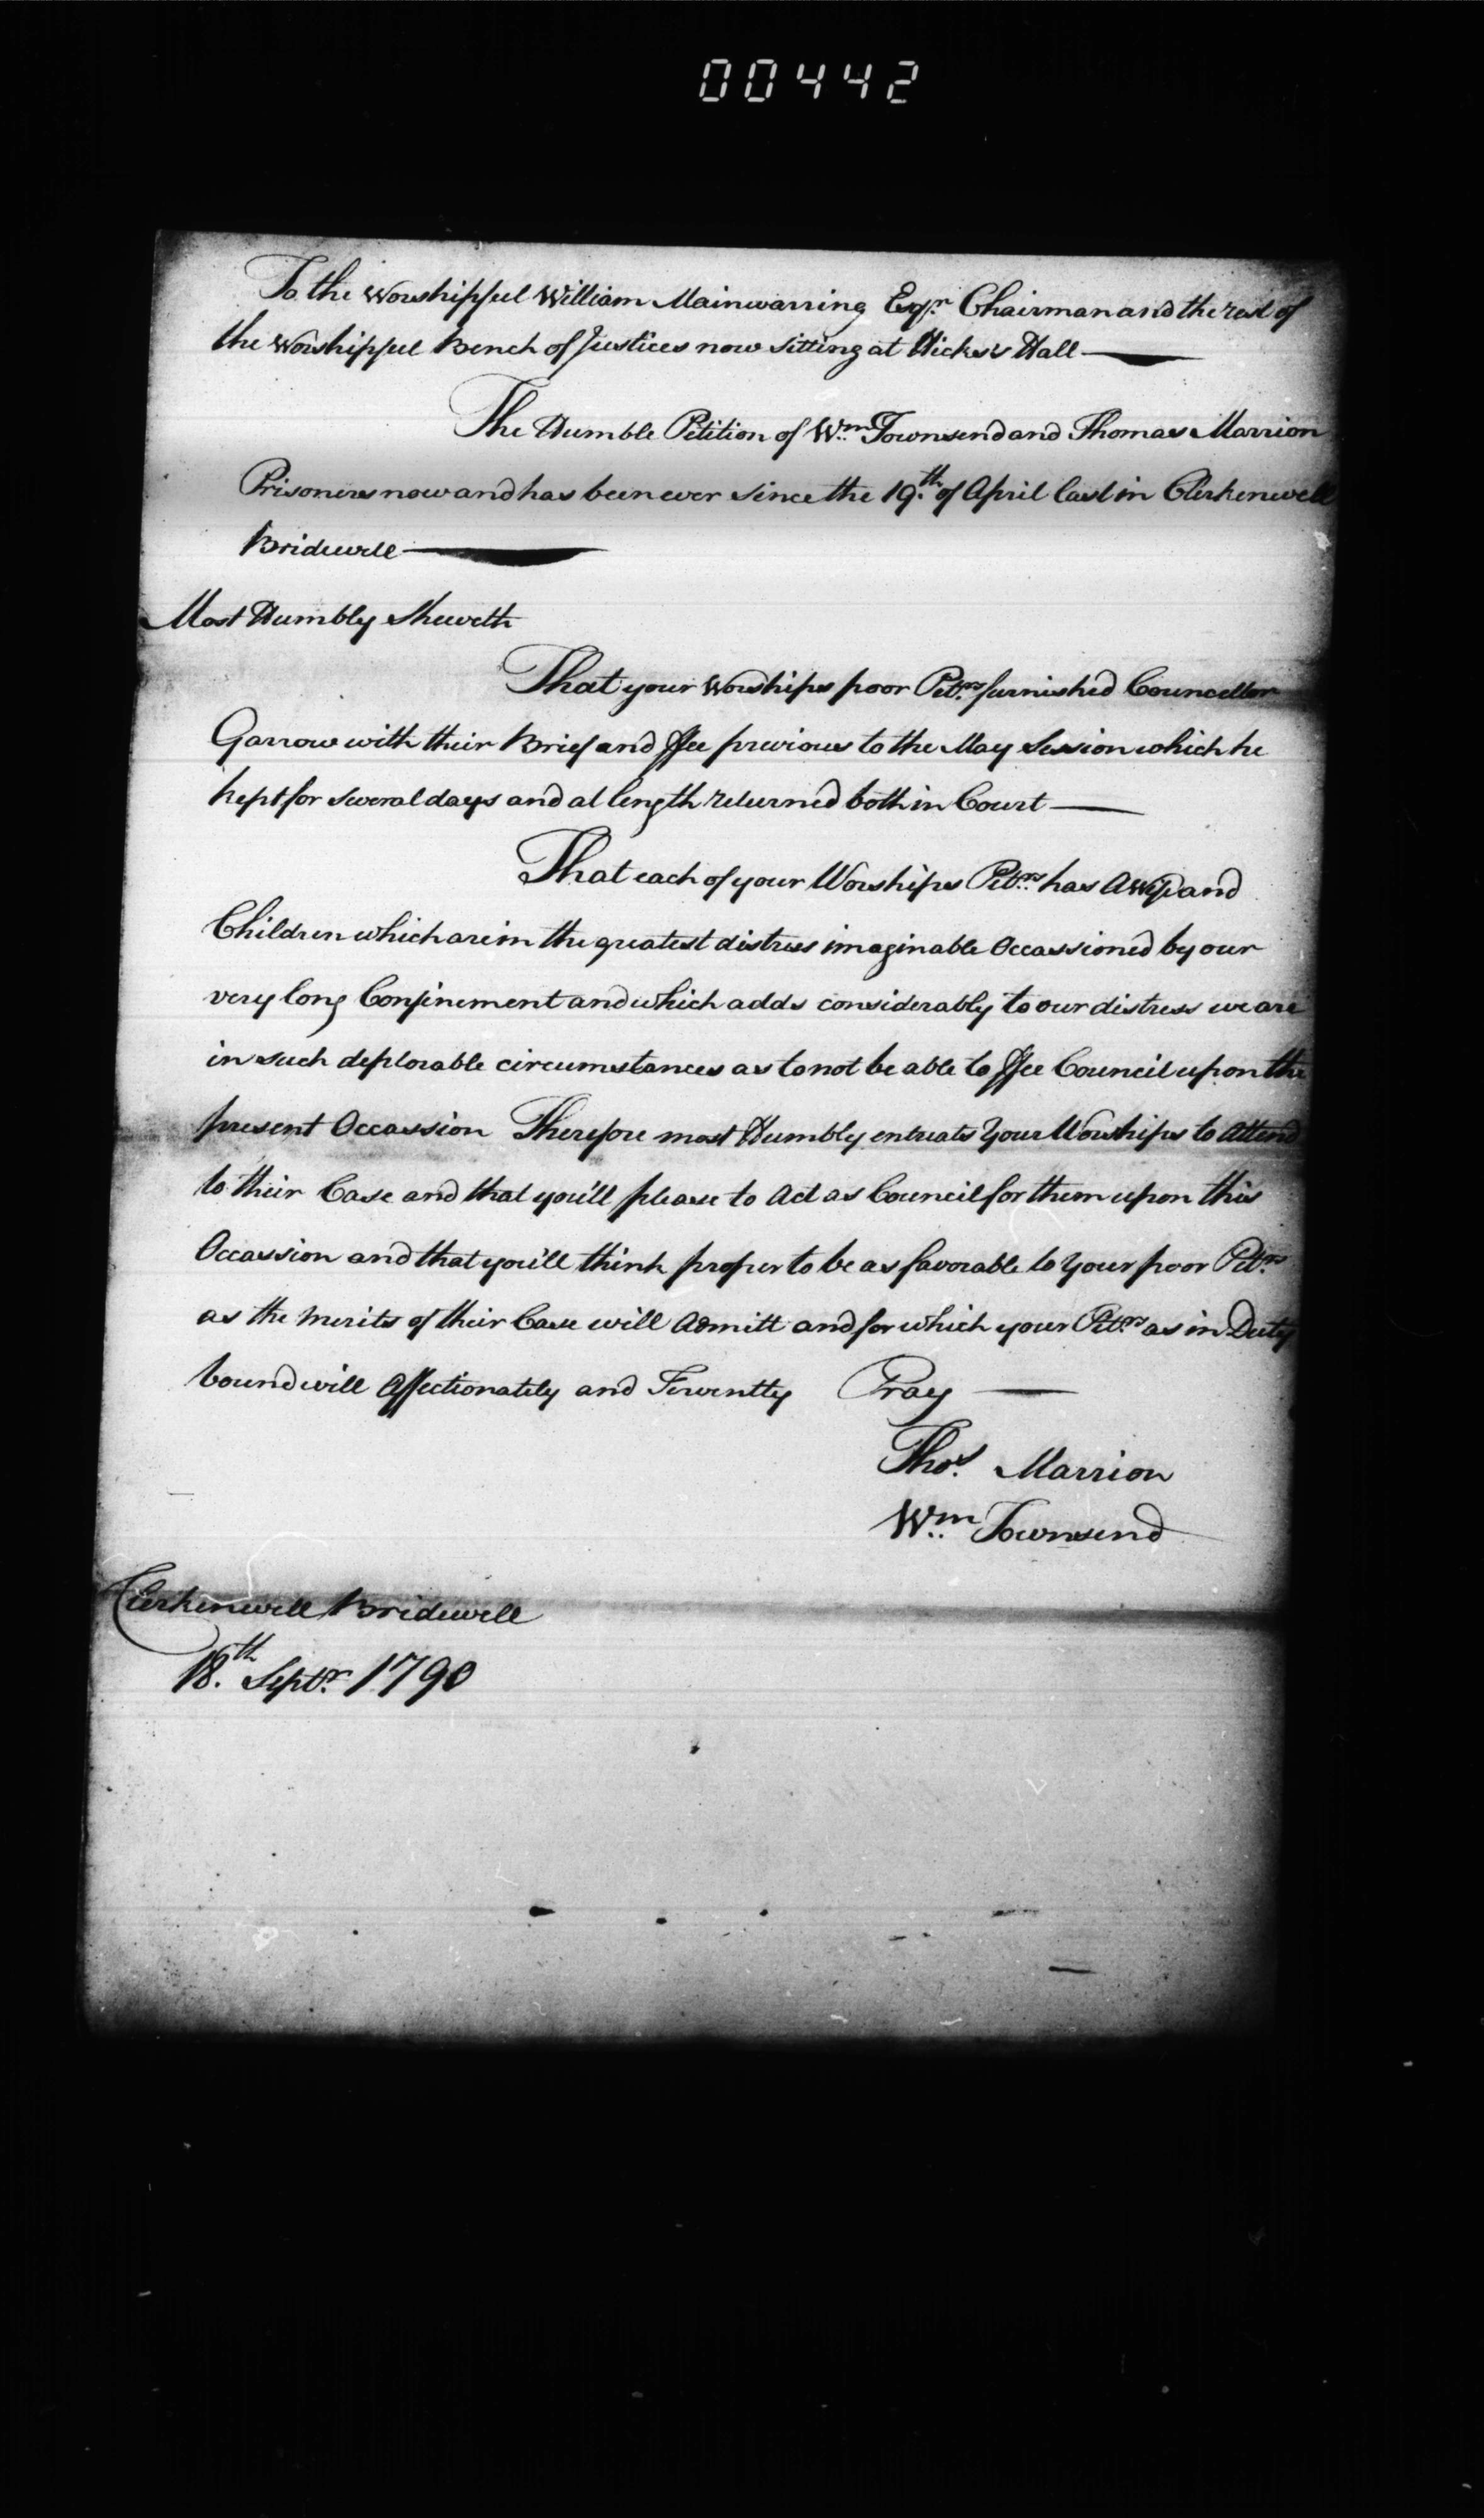 00442
To the Worshipful William Mainwarring Esqr. Chairman and the rest of
the Worshipful Bench of Justices now sitting at Hicks's Hall
The Humble Petition of Wm. Townsend and Thomas Marrion
Prisoners now and has been ever since the 19th. of April last in Clerkenwell
Bridewell
Most Humbly Sheweth
That your Worships poor Petrs. furnished Councellor
Garrow with their Brief and ffee previous to the May Session which he
kept for several days and at length returned both in Court
That each of your Worships Petrs. has a Wife and
Children which are in the greatest distress imaginable Occassioned by our
very long Confinement and which adds considerably to our distress we are
in such deplorable circumstances as to not be able to ffee Council upon the
present Occassion Therefore most Humbly entreats Your Worships to Attend
to their Case and that you'll please to Act as Council for them upon this
Occassion and that you'll think proper to be as favorable to Your poor Petrs.
as the merits of their Case will Admitt and for which your Petrs. as in Duty
bound will Affectionately and Ferventty Pray
Thos. Marrion
Wm. Townsend
Clerkenwell Bridewell
18th. Septr. 1790